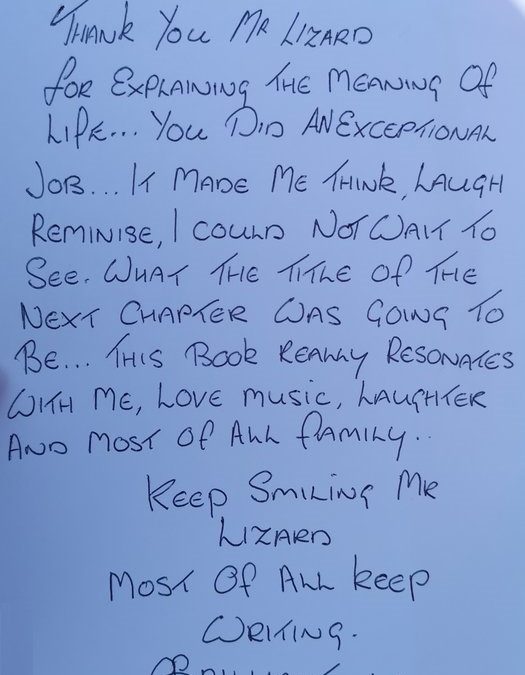 Thank You Mr Lizard
for Explaining The Meaning Of
Life... You Did An Exceptional
Job... It Made Me Think, Laugh
Reminise, I could Not Wait To
See. What The Title Of The
Next Chapter Was Going To
Be... This Book Really Resonates
With Me, Love music, Laughter
And Most Of All family..
Keep Smiling Mr
Lizard
Most Of All keep
Writing.